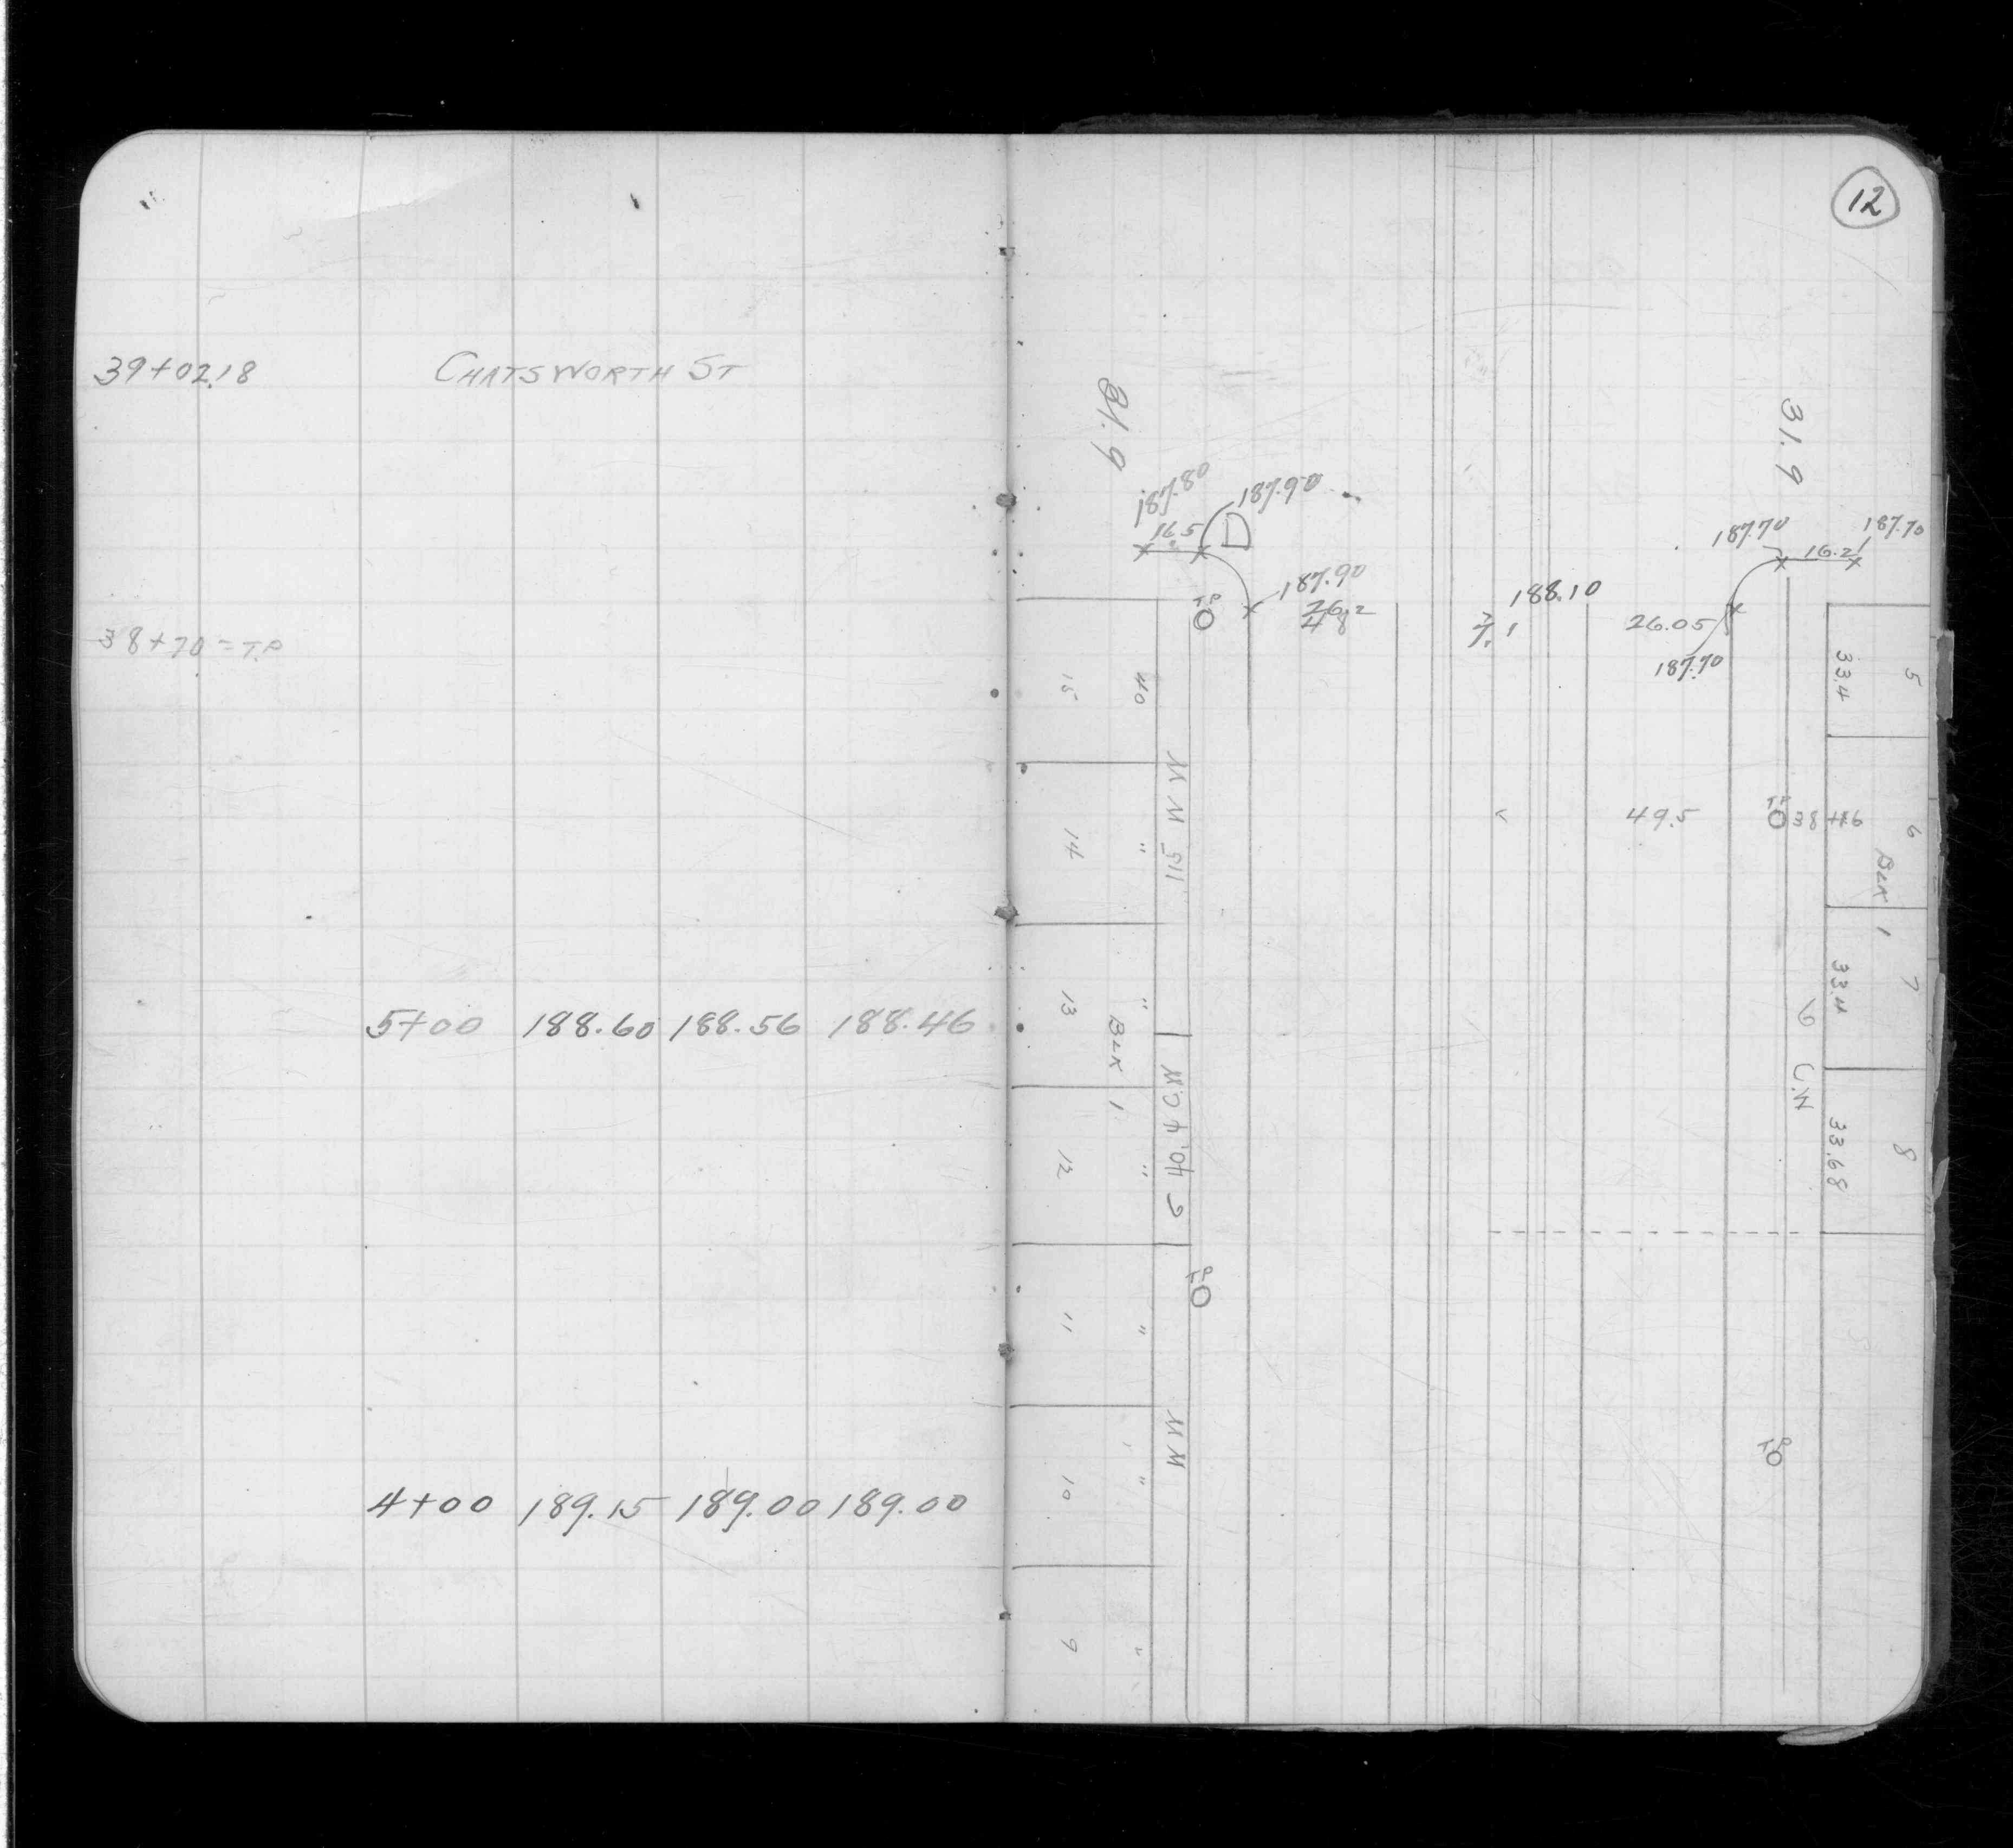 39+02.18 CHATSWORTH ST
38+70 = T.P
5+00 188.60 188.56 188.46
4+00 189.15 189.00 189.00
12
31.9
31.9
187.80
187.60
16.5
187.70
187.70
16.2
187.90
188.10
T.P
26.2
26.05
187.70
40
15
33.4
5
14
"
49.5
T.P
6
BLK 1
13
"
BLK 1
33.4
7
12
"
33.68
8
T.P
11
"
T.P
10
"
9
"